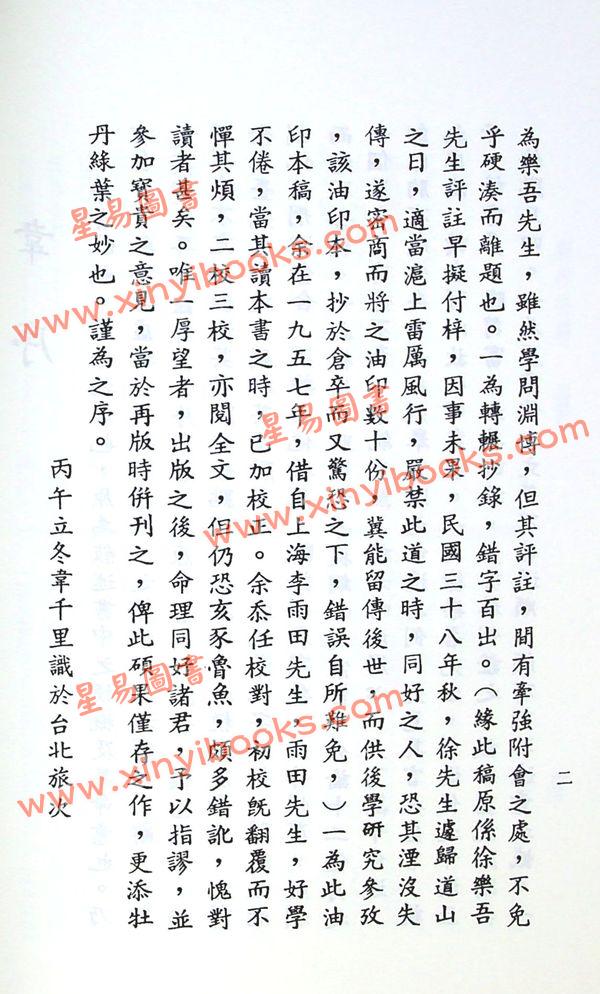 為樂吾先生，雖然學問淵博，但其評註，間有牽強附會之處，不免
乎硬湊而離題也。一為轉輾抄錄，錯字百出。（緣此稿原係徐樂吾
先生評註早擬付梓，因事未果，民國三十八年秋，徐先生遽歸道山
之日，適當滬上雷厲風行，嚴禁此道之時，同好之人，恐其湮沒失
傳，遂密商而將之油印數十份，冀能留傳後世，而供後學研究參攷
，該油印本，抄於倉卒而又驚恐之下，錯誤自所難免，）一為此油
印本稿，余在一九五七年，借自上海李雨田先生，雨田先生，好學
不倦，當其讀本書之時，已加校正。余忝任校對，初校既翻覆而不
憚其煩，二校三校，亦閱全文，但仍恐亥豕魯魚，頗多錯訛，愧對
讀者甚矣。唯一厚望者，出版之後，命理同好諸君，予以指謬，並
參加寶貴之意見，當於再版時併刊之，俾此碩果僅存之作，更添牡
丹綠葉之妙也。謹為之序。
丙午立冬韋千里識於台北旅次
二
星易圖書
www.xinyibooks.com
星易圖書
www.xinyibooks.com
星易圖書
www.xinyibooks.com